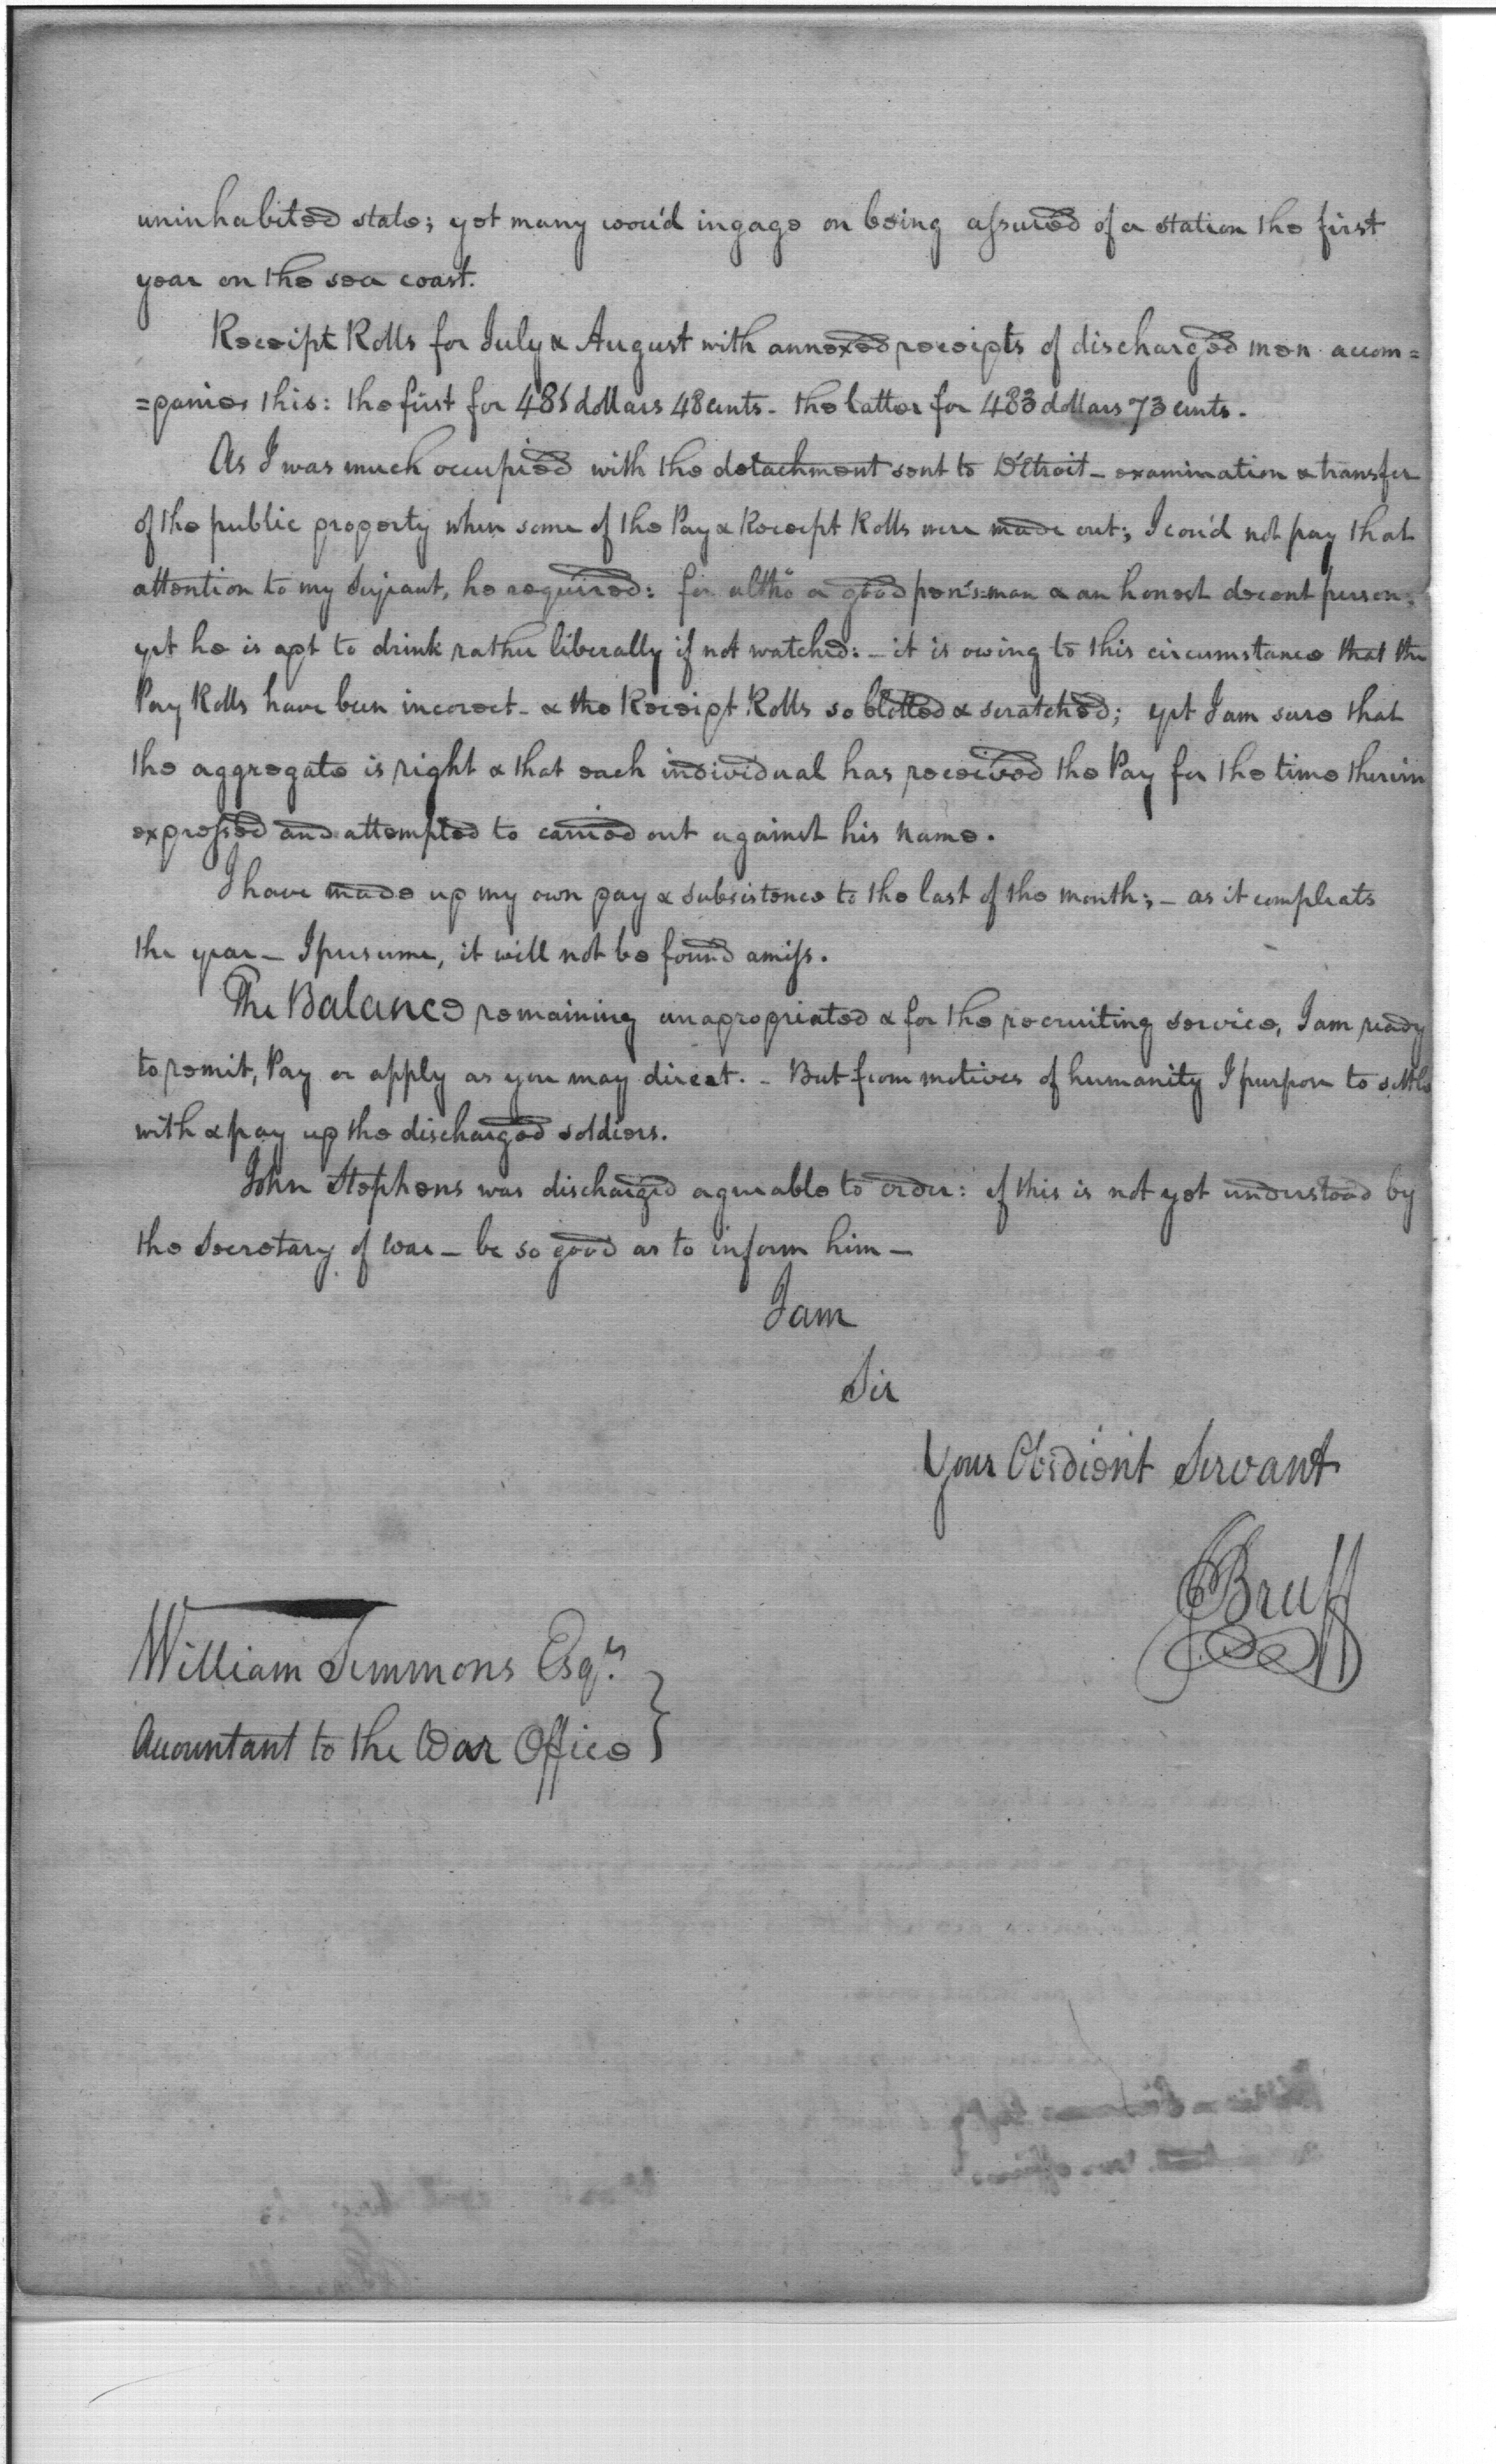 uninhabited state; yet many wou'd ingage on being assured of a station the first
year on the sea coast.
Receipt Rolls for July & August with annexed receipts of discharged men accom=
=panies this: the first for 481 dollars 48 cents - the latter for 483 dollars 73 cents.
As I was much occupied with the detachment sent to D'Etroit - examination & transfer
of the public property when some of the Pay & Receipt Rolls were made out; I cou'd not pay that
attention to my serjeant, he required: for altho' a good pen's=man & an honest decent person;
yet he is apt to drink rather liberally if not watched: - it is owing to this circumstance that the
Pay Rolls have been incorect - & the Receipt Rolls so blotted & scratched; yet I am sure that
the aggregate is right & that each individual has received the Pay for the time therein
expressed and attempted to carried out against his name.
I have made up my own pay & subsistence to the last of the month; - as it compleats
the year - I presume, it will not be found amiss.
The Balance remaining unapropriated & for the recruiting service, I am ready
to remit, Pay or apply as you may direct. - But from motives of humanity I purpose to settle
with & pay up the discharged soldiers.
John Stephens was discharged agreeable to order: if this is not yet understood by
the Secretary of War - be so good as to inform him -
I am
Sir
Your Obedient Servant
JBruff
William Simmons Esqr.
Accountant to the War Office }